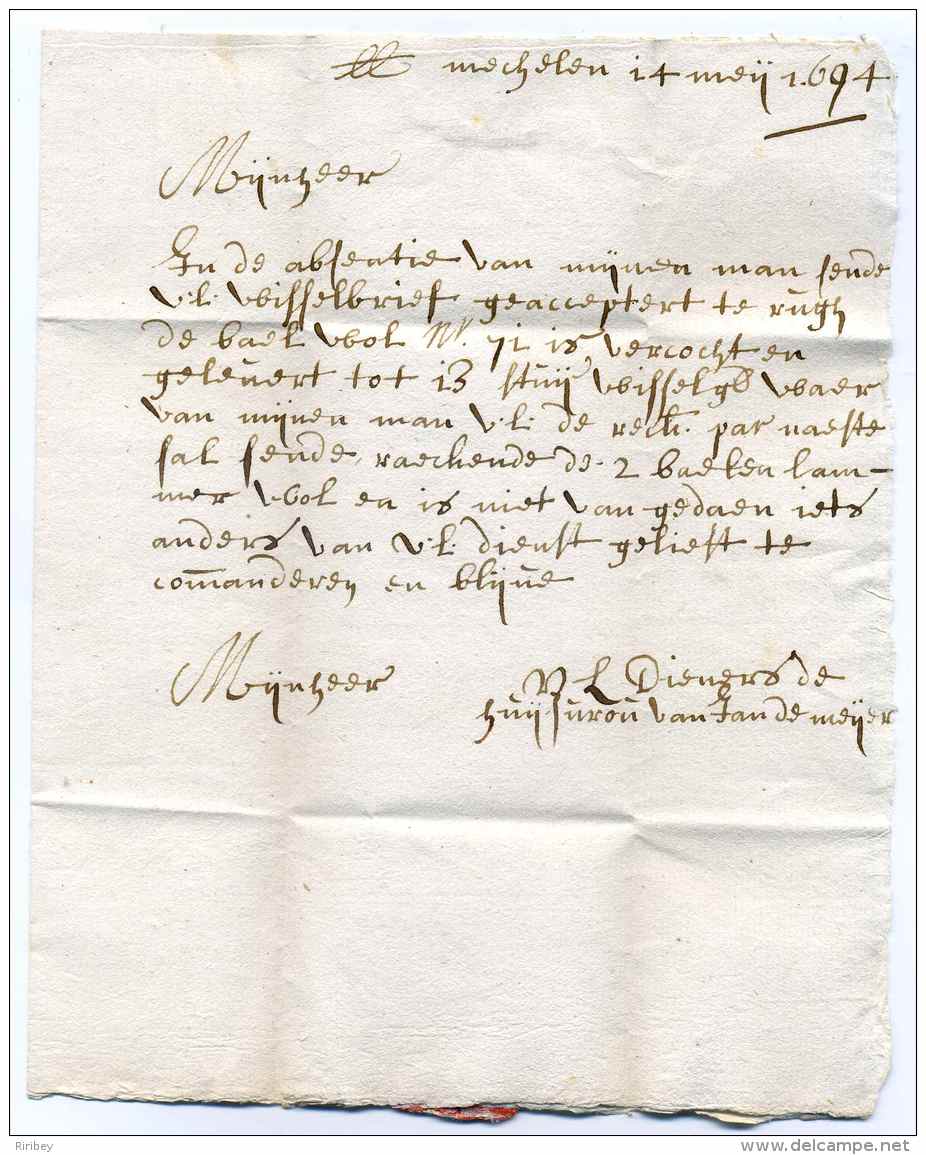 mechelen 14 meij 1694
Mijnheer
In de absentie van mijnen man sende
v:l: wisselbrief geaccepteert te rugh
de bael wol N°. 71 is vercocht en
gelevert tot 13 stuij wisselg waer
van mijnen man v:l: de rech: par naeste
sal sende, raeckende de 2 baelen lam-
mer wol en is niet van gedaen iets
anders van v:l: dienst gelieft te
commanderen en blijve
Mijnheer
V L Dieners de
huijsvrou van Jan de meijer
Riribey
www.delcampe.net